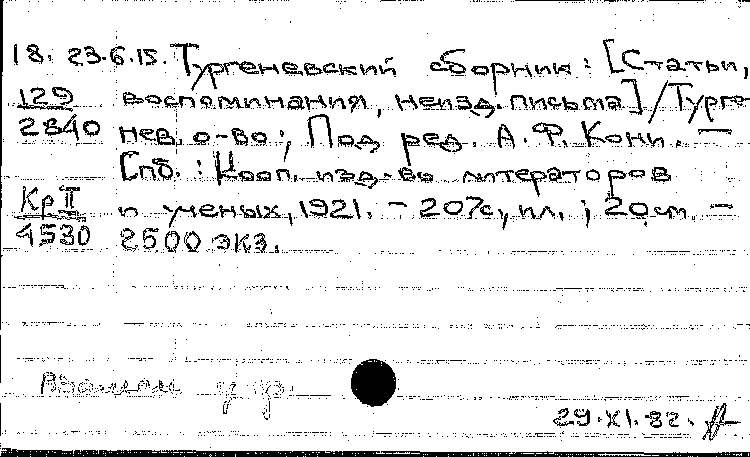 18. 23.6.15. Тургеневский сборник: [Статьи,
129 воспоминания, неизд. письма] / Турге-
2840 нев. о-во; Под ред. А. Ф. Кони. —
Спб.: Кооп. изд-во литераторов
Кр II и ученых, 1921. - 207с, ил.; 20 см. —
4530 2500 экз.
29.XI.82.